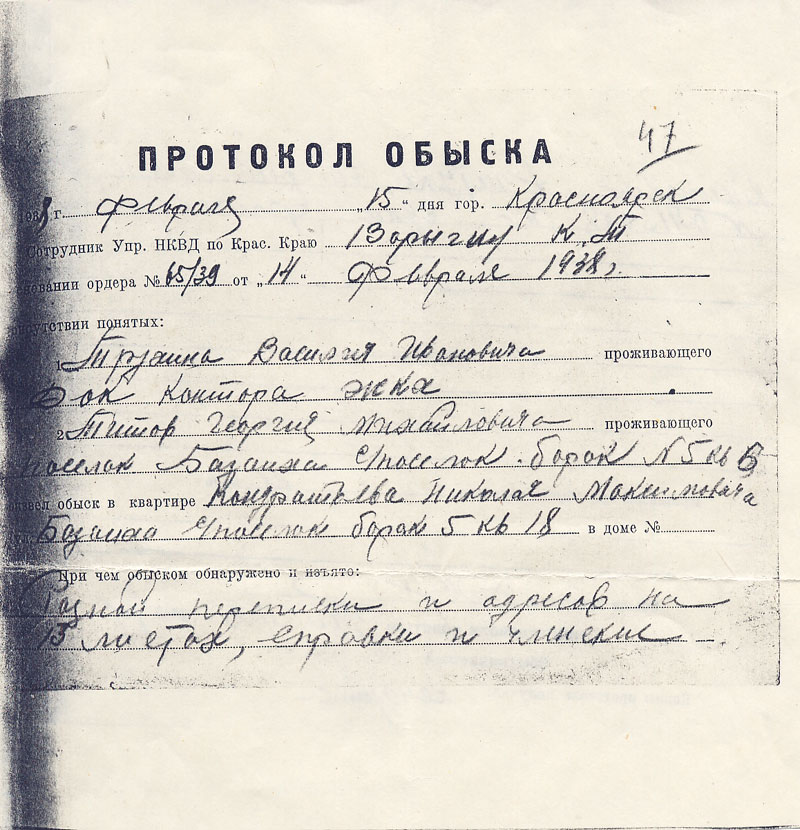 47
ПРОТОКОЛ ОБЫСКА
1938 г. Февраля „15“ дня гор. Красноярск
Сотрудник Упр. НКВД по Крас. Краю К. Т
новании ордера № 65/39 от „14“ Февраля 1938 г.
рисутствии понятых:
1 Василия Ивановича проживающего
Док контора жка
2 Титов Георгий Михайлович проживающего
поселок Базаиха Споселок барак N 5 кв 6
вел обыск в квартире Кондратьева Николая Максимовича
Базаиха Споселок барак 5 кв 18 в доме №
При чем обыском обнаружено и изъято:
Разной переписки и адресов на
15 листах, справки и членские